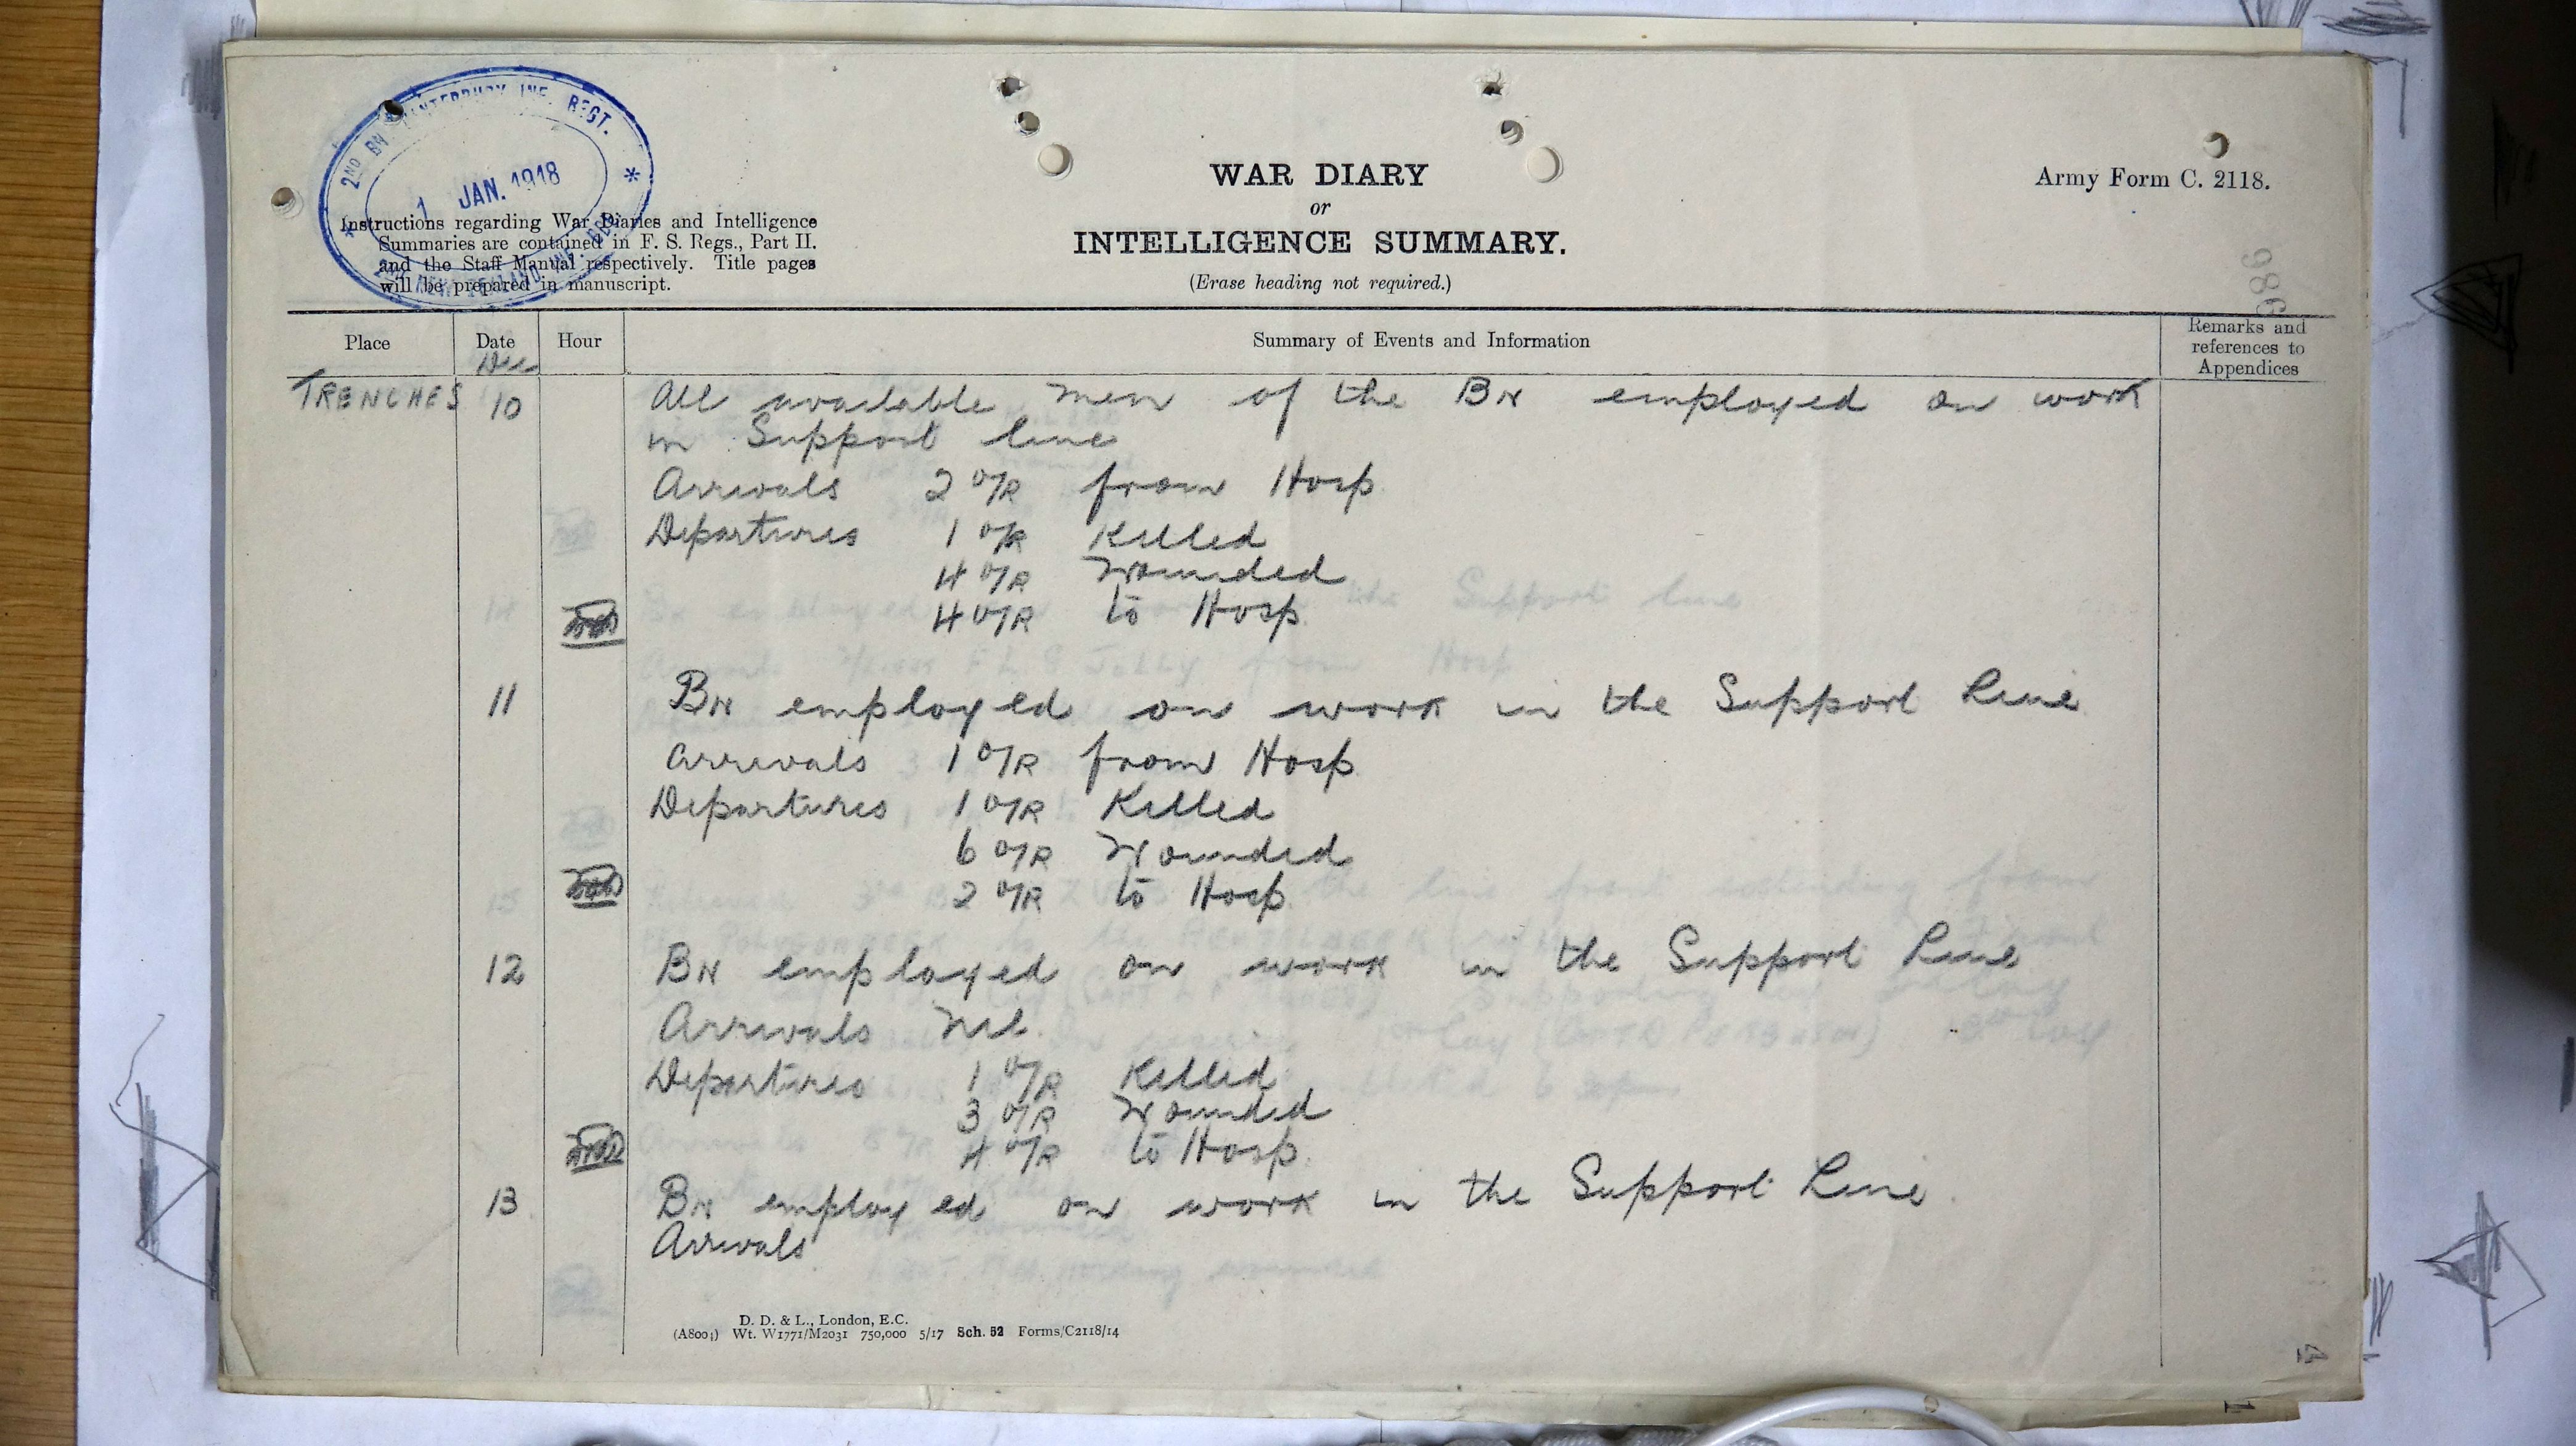 2ND BN CANTERBURY INF. REGT.
1 JAN. 1918
Instructions regarding War Diaries and Intelligence
Summaries are contained in F. S. Regs., Part II.
and the Staff Manual respectively. Title pages
will be prepared in manuscript.
WAR DIARY
or
INTELLIGENCE SUMMARY.
(Erase heading not required.)
Army Form C. 2118.
Place Date Hour Summary of Events and Information Remarks and
references to
Appendices
Dec
TRENCHES 10 All available men of the BN employed on work
in Support line
Arrivals 2 O/R from Hosp
Departures 1 O/R Killed
4 O/R Wounded
4 O/R to Hosp
11 BN employed on work in the Support Line
Arrivals 1 O/R from Hosp
Departures 1 O/R Killed
6 O/R Wounded
2 O/R to Hosp
12 BN employed on work in the Support Line
Arrivals Nil
Departures 1 O/R Killed
3 O/R Wounded
4 O/R to Hosp
13 BN employed on work in the Support Line
Arrivals
D. D. & L., London, E.C.
(A8004) Wt. W1771/M2031 750,000 5/17 Sch. 52 Forms/C2118/14